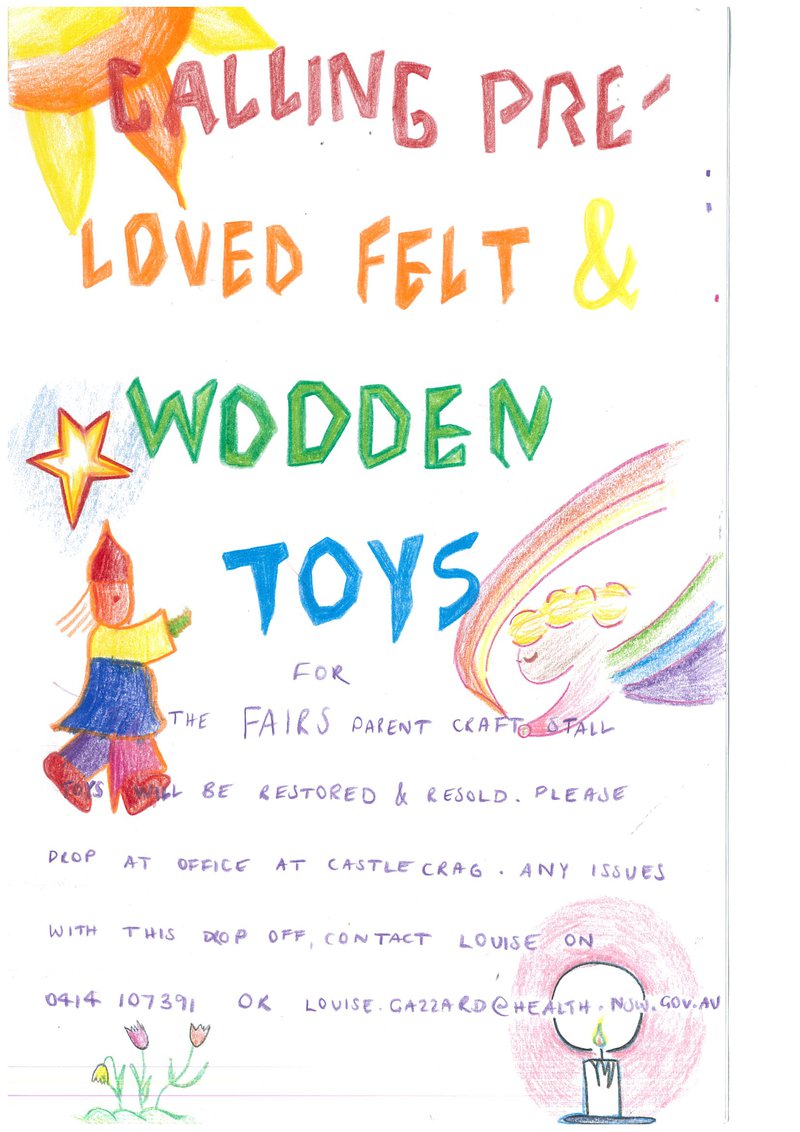 CALLING PRE-
LOVED FELT &
WOODEN
TOYS
FOR
THE FAIRS PARENT CRAFT STALL
TOYS WILL BE RESTORED & RESOLD. PLEASE
DROP AT OFFICE AT CASTLECRAG. ANY ISSUES
WITH THIS DROP OFF, CONTACT LOUISE ON
0414 107391 OR LOUISE.GAZZARD@HEALTH.NSW.GOV.AU